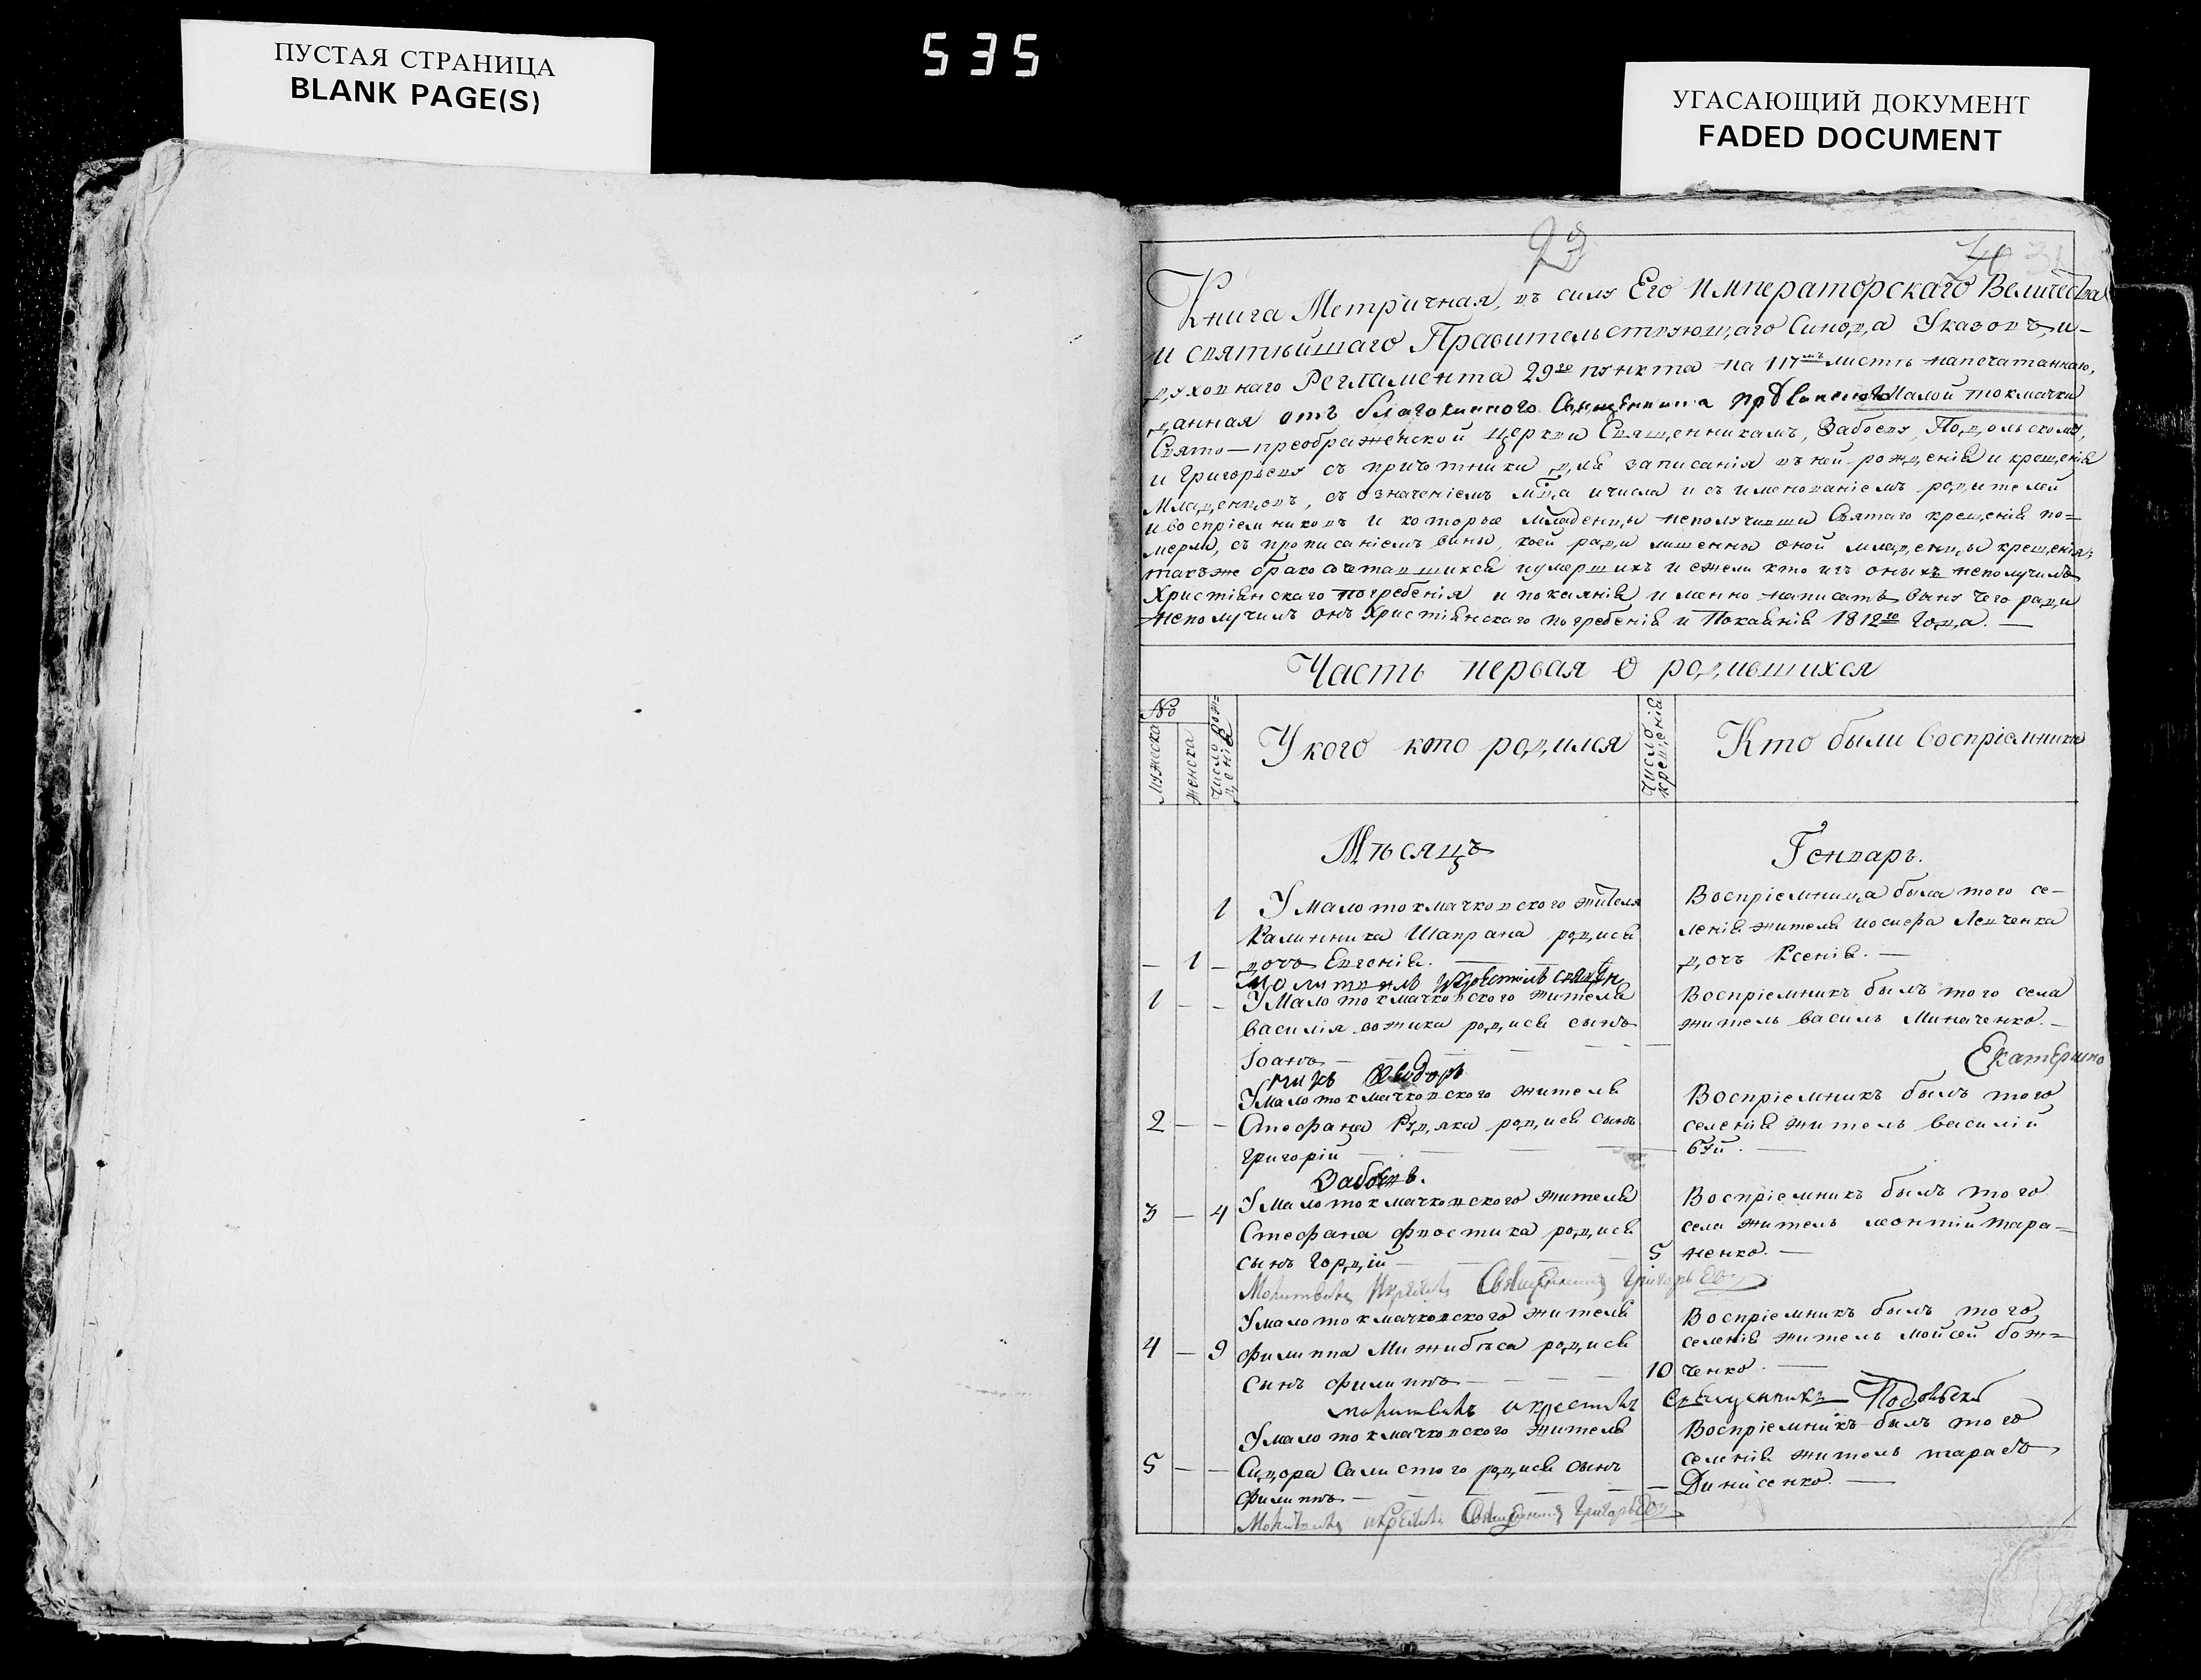 ПУСТАЯ СТРАНИЦА
BLANK PAGE(S)
535
УГАСАЮЩИЙ ДОКУМЕНТ
FADED DOCUMENT
Книга Метричная, въ силу Его Императорскаго Величества
и святѣйшаго Правительствующаго Синода Указовъ, и
духовнаго Регламента 29го пункта на 117мъ листѣ напечатаннаго,
данная отъ благочинного Священника Малой токмачки
Свято-преображенской церкви Священникамъ, Забоеву, Подольскому,
и Григорьеву съ причотники для записанія въ ней рожденія и крещенія
Младенцовъ, съ означеніемъ мца и числа и съ именованіемъ родителей
и воспріемниковъ и которые младенцы неполучивши Святаго крещенія по=
мерли, съ прописаніемъ вины, коей ради лишенны оной младенцы крещенія;
такъже бракосочетавшихся и умершихъ и ежели кто изъ оныхъ неполучилъ
Христіянскаго погребенія и покаянія именно написать вину чего ради
неполучилъ онъ Христіянскаго погребенія и Покаянія 1812го Года. —
Часть первая о родившихся
№
Мужеска
женска
число рож=
денія
У кого кто родился
число
крещенія
Кто были воспріемники
Мѣсяцъ
Генваръ.
1 У малотокмачковского жителя
Калинника Шапрана родися
— 1 — дочъ Евгенія. —
Воспріемница была того се-
ленія жителя иосифа Левченка
дочъ Ксенія. —
Молитвилъ
1 — — У Малотокмачковского жителя
василія вожика родися сынъ
Іоанъ —
Воспріемникъ былъ того села
житель василь Миначенко. —
Екатерино
Феодоръ
У малотокмачковского жителя
2 — — Стефана Рудяка родися сынъ
григорій —
Воспріемникъ былъ того
селенія житель василій
буй. —
Забоевъ.
3 — 4 У малотокмачковского жителя
Стефана фвостика родися
сынъ гордій —
5
Воспріемникъ былъ того
села житель леонтій тара=
ненко. —
Молитвилъ Икрестилъ Священникъ Григорьевъ
У малотокмачковского жителя
4 — 9 филиппа Мижибѣса родися
сынъ филиппъ —
10
Воспріемникъ былъ того
селенія житель мойсей бож=
ченко. —
молитвилъ и крестилъ Священникъ Подольскій
У малотокмачковского жителя
5 — — Сидора Салистого родися сынъ
филиппъ —
Воспріемникъ былъ того
селенія житель тарасъ
Динисенко. —
Молитвилъ икрестилъ Священникъ Григорьевъ